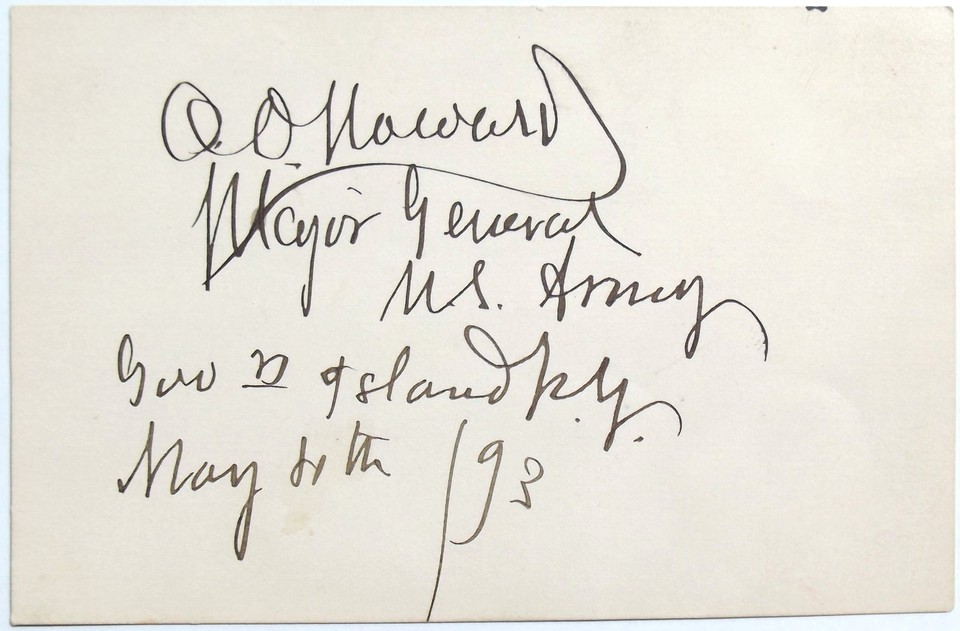 O. O. Howard
Major General
U.S. Army
Gov rs Island N.Y.
May 4th /93